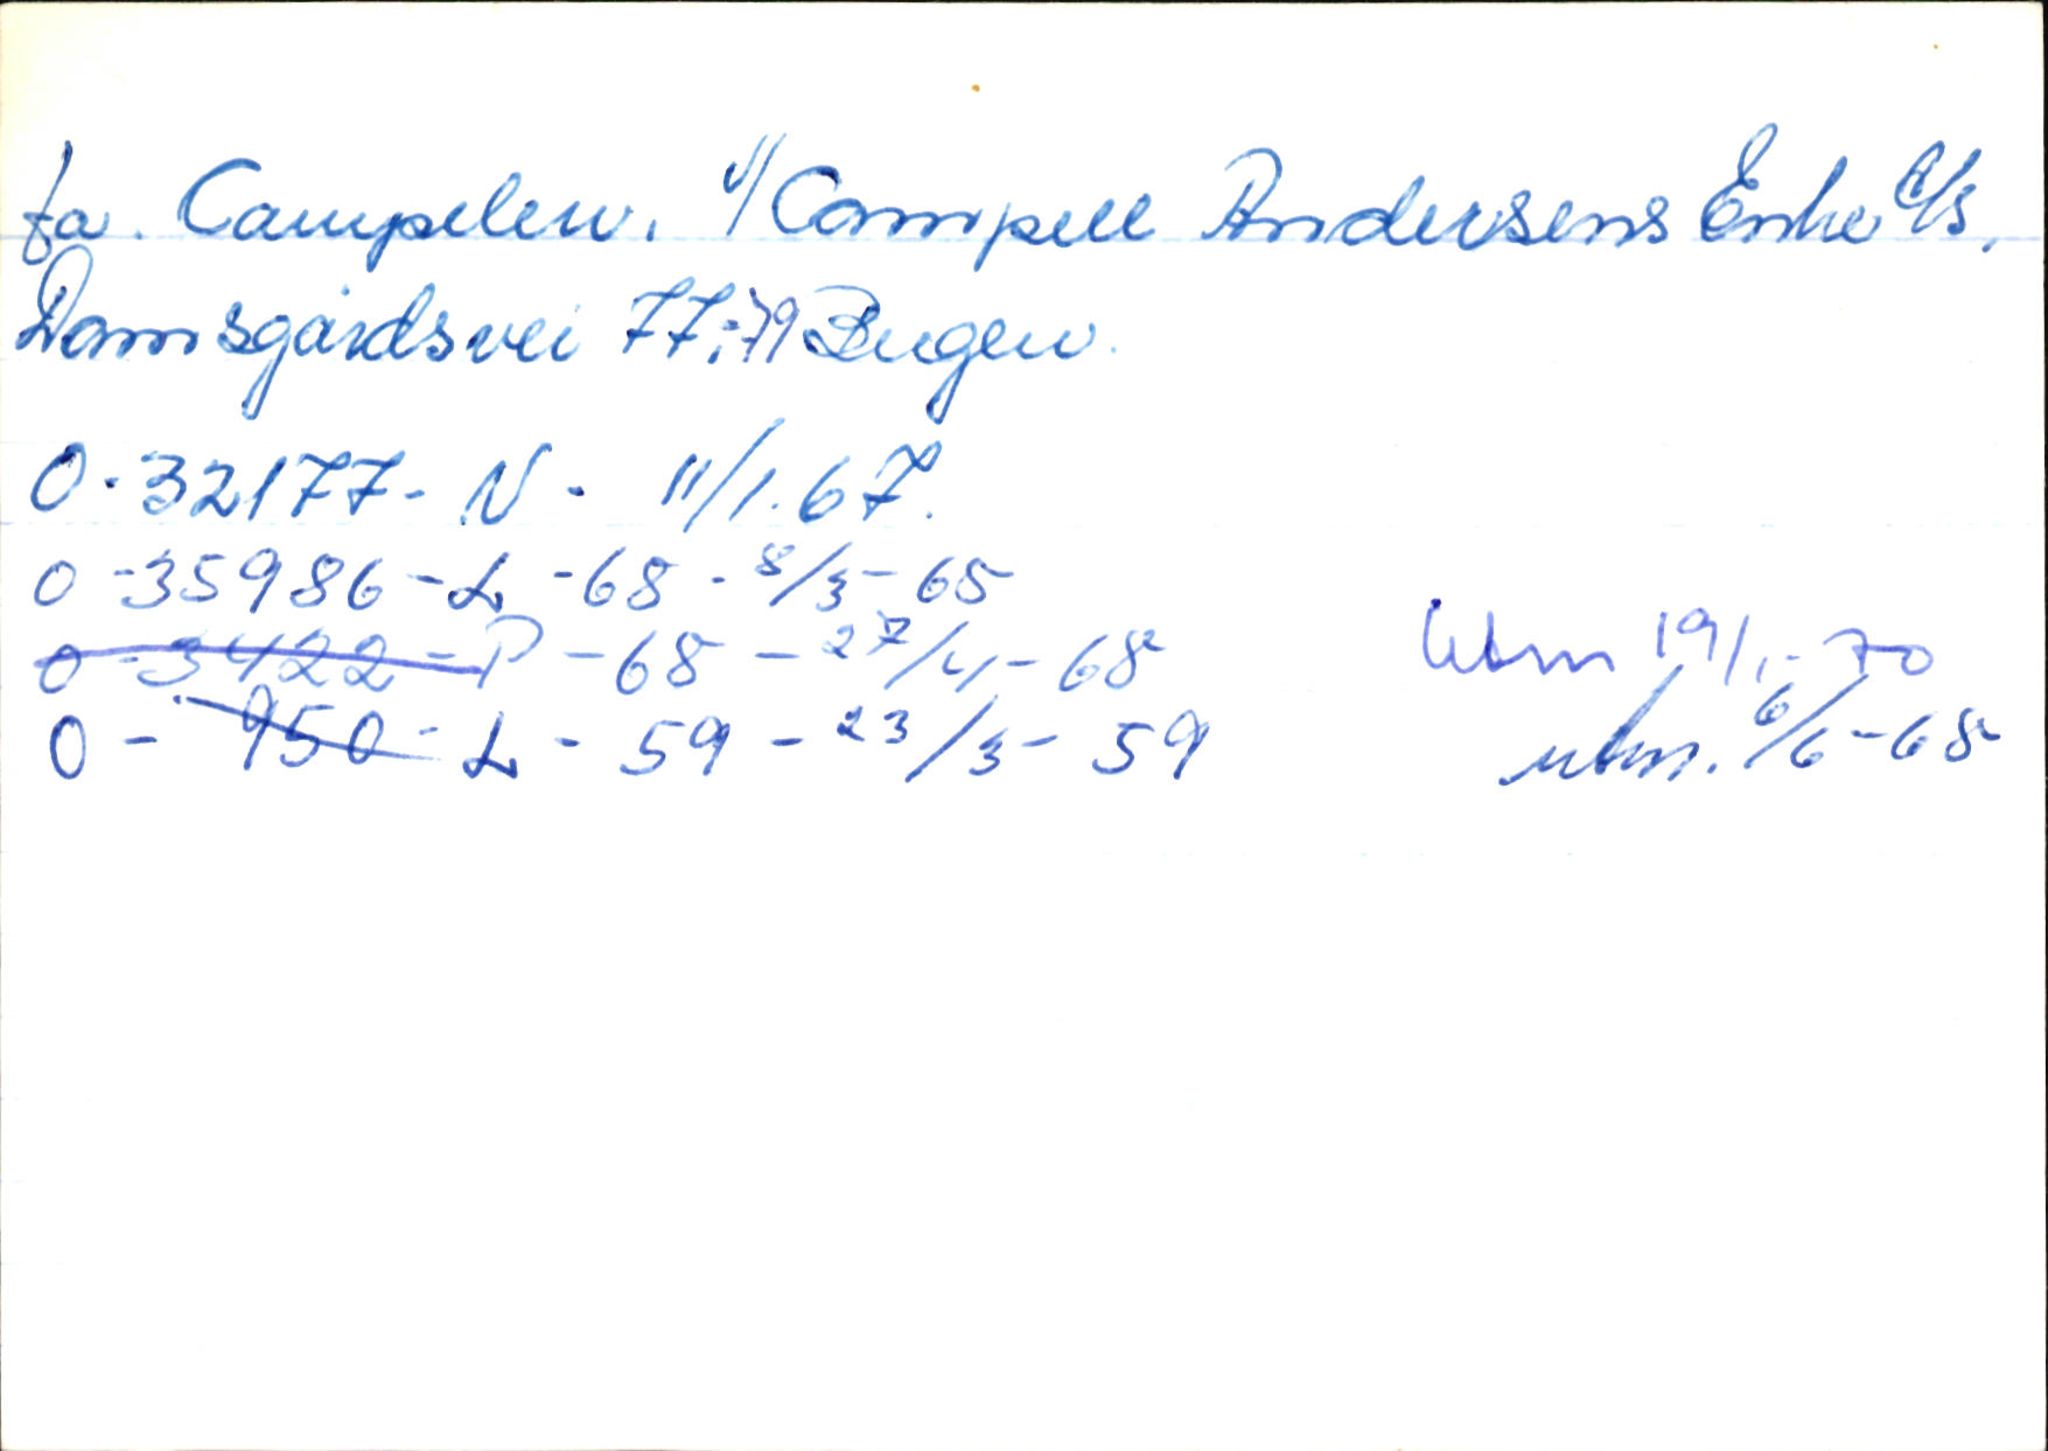 fa. Campelen. v/ Campell Andersens Enke A/S,
Damsgårdsvei 77-79 Bergen.
O-32177-N- 11/1.67.
O-35986-L-68-8/3-65
O-3422-P-68-27/4-68 Utm 19/1-70
O-950-L-59-23/3-59 utm. 6/6-68